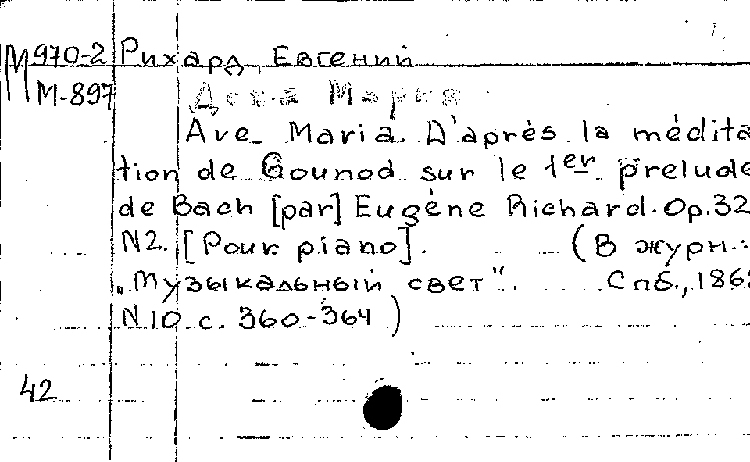 М970-2 Рихард, Евгений
М-897 Дева Мария
Ave Maria. D'après la médita
tion de Gounod sur le 1er prelude
de Bach [par] Eugène Richard. Op. 32
N2. [Pour piano]. (В журн.:
„Музыкальный свет". Спб.,
N10 с. 360-364)
42